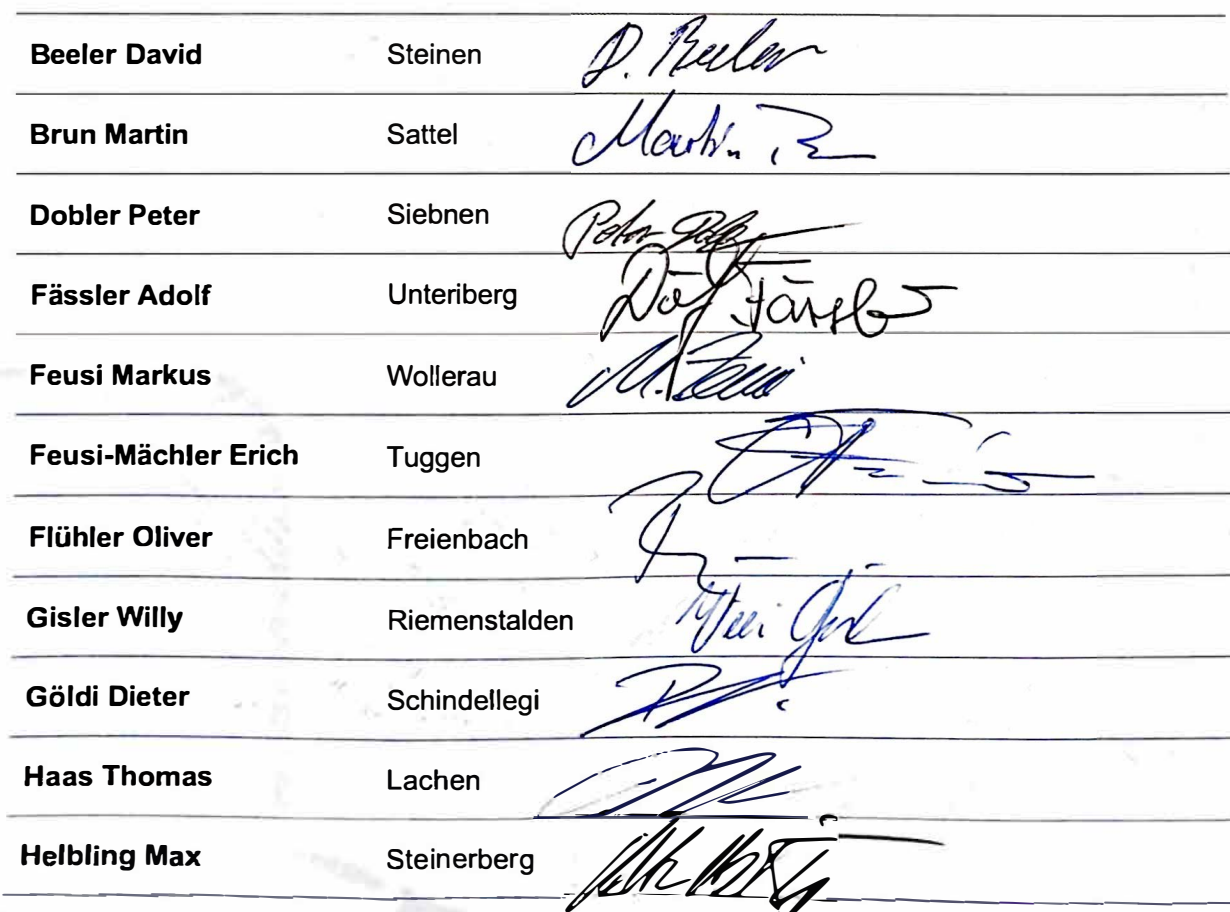 Beeler David Steinen D. Beeler
Brun Martin Sattel Martin
Dobler Peter Siebnen Peter
Fässler Adolf Unteriberg Fässler
Feusi Markus Wollerau M. Feusi
Feusi-Mächler Erich Tuggen
Flühler Oliver Freienbach
Gisler Willy Riemenstalden
Göldi Dieter Schindellegi
Haas Thomas Lachen
Helbling Max Steinerberg